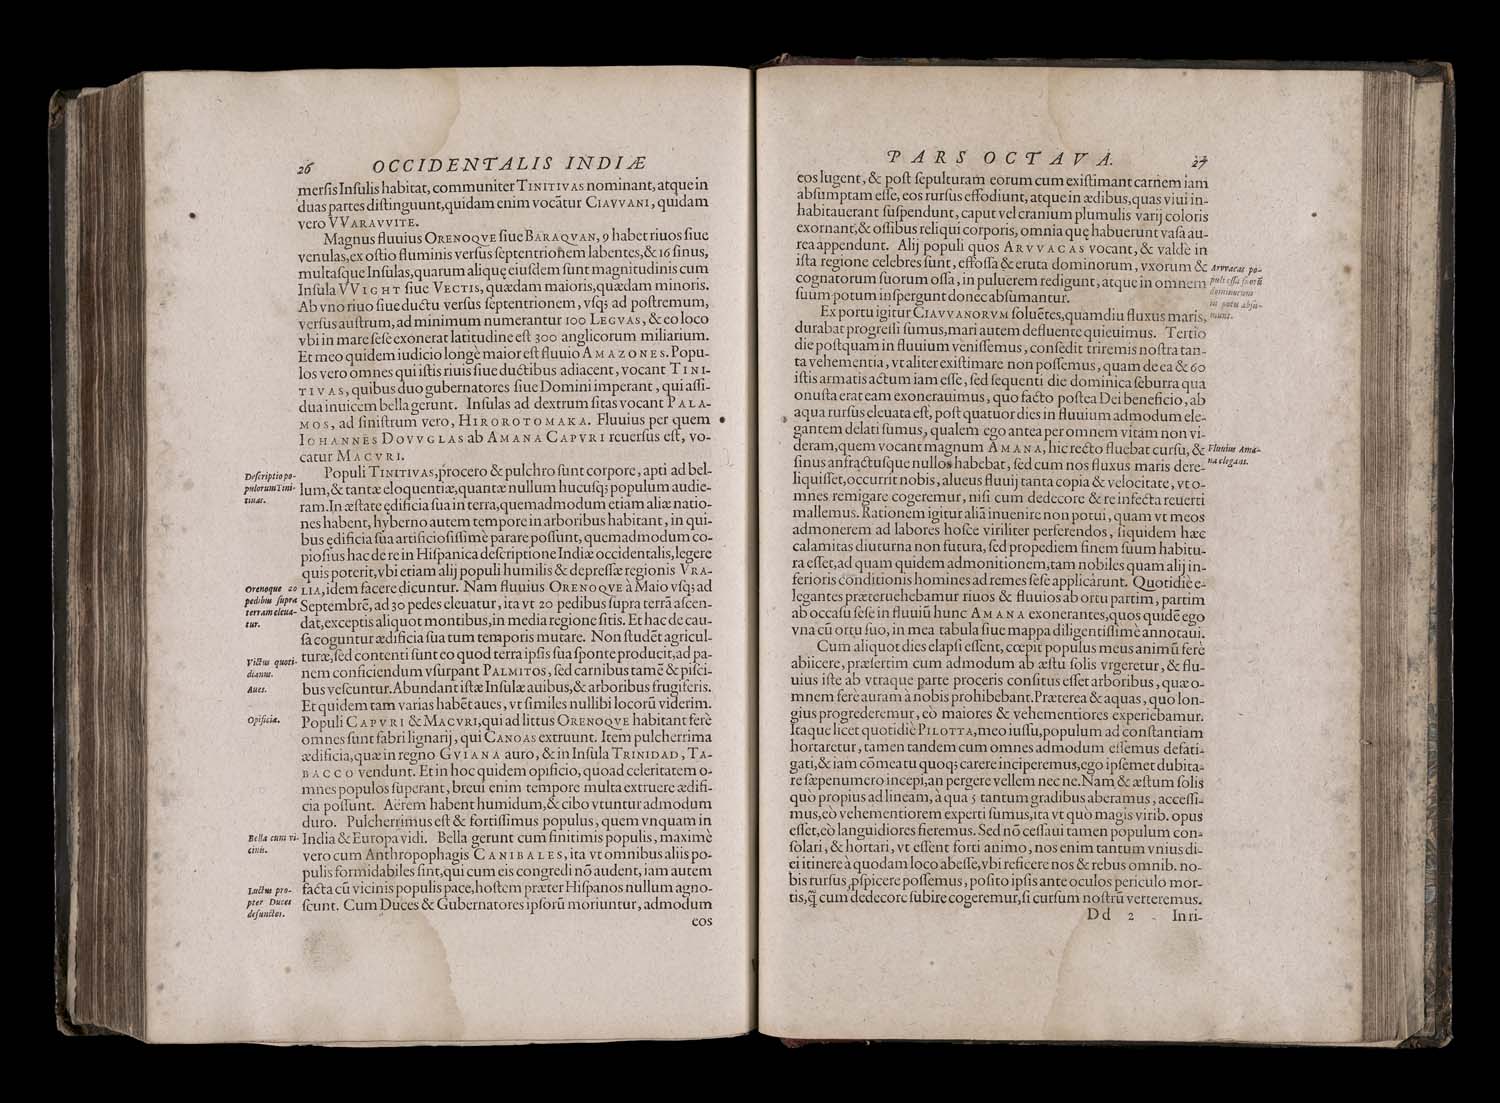 26 OCCIDENTALIS INDIÆ
merſis Inſulis habitat, communiter TINITIVAS nominant, atque in
duas partes diſtinguunt, quidam enim vocātur CIAVVANI, quidam
vero VVARAVVITE.
Magnus fluuius ORENOQVE ſiue BARAQVAN, 9 habet riuos ſiue
venulas, ex oſtio fluminis verſus ſeptentrionem labentes, & 16 ſinus,
multaſque Inſulas, quarum aliquę eiuſdem ſunt magnitudinis cum
Inſula VVIGHT ſiue VECTIS, quædam maioris, quædam minoris.
Ab vno riuo ſiue ductu verſus ſeptentrionem, vſq; ad poſtremum,
verſus auſtrum, ad minimum numerantur 100 LEGVAS, & eo loco
vbi in mare ſeſe exonerat latitudine eſt 300 anglicorum miliarium.
Et meo quidem iudicio longè maior eſt fluuio AMAZONES. Popu-
los vero omnes qui iſtis riuis ſiue ductibus adiacent, vocant TINI-
TIVAS, quibus duo gubernatores ſiue Domini imperant, qui aſſi-
dua inuicem bella gerunt. Inſulas ad dextrum ſitas vocant PALA-
MOS, ad ſiniſtrum vero, HIROROTOMAKA. Fluuius per quem
IOHANNES DOVVGLAS ab AMANA CAPVRI reuerſus eſt, vo-
catur MACVRI.
Deſcriptio po-
pulorum Tini-
tiuas.
Populi TINITIVAS, procero & pulchro ſunt corpore, apti ad bel-
lum, & tantæ eloquentiæ, quantæ nullum hucuſq; populum audie-
ram. In æſtate ędificia ſua in terra, quemadmodum etiam aliæ natio-
nes habent, hyberno autem tempore in arboribus habitant, in qui-
bus ędificia ſua artificioſiſſimè parare poſſunt, quemadmodum co-
pioſius hac de re in Hiſpanica deſcriptione Indiæ occidentalis, legere
quis poterit, vbi etiam alij populi humilis & depreſſæ regionis VRA-
Orenoque 20
pedibus ſupra
terram eleua-
tur.
LIA, idem facere dicuntur. Nam fluuius ORENOQVE à Maio vſq; ad
Septembrē, ad 30 pedes eleuatur, ita vt 20 pedibus ſupra terrā aſcen-
dat, exceptis aliquot montibus, in media regione ſitis. Et hac de cau-
ſa coguntur ædificia ſua tum temporis mutare. Non ſtudēt agricul-
Victus quoti-
dianus.
turæ, ſed contenti ſunt eo quod terra ipſis ſua ſponte producit, ad pa-
nem conficiendum vſurpant PALMITOS, ſed carnibus tamē & piſci-
Aues.
bus veſcuntur. Abundant iſtæ Inſulæ auibus, & arboribus frugiferis.
Et quidem tam varias habēt aues, vt ſimiles nullibi locorū viderim.
Opificia.
Populi CAPVRI & MACVRI, qui ad littus ORENOQVE habitant ferè
omnes ſunt fabri lignarij, qui CANOAS extruunt. Item pulcherrima
ædificia, quæ in regno GVIANA auro, & in Inſula TRINIDAD, TA-
BACCO vendunt. Et in hoc quidem opificio, quoad celeritatem o-
mnes populos ſuperant, breui enim tempore multa extruere ædifi-
cia poſſunt. Aërem habent humidum, & cibo vtuntur admodum
duro. Pulcherrimus eſt & fortiſſimus populus, quem vnquam in
Bella cum vi-
cinis.
India & Europa vidi. Bella gerunt cum finitimis populis, maximè
vero cum Anthropophagis CANIBALES, ita vt omnibus aliis po-
pulis formidabiles ſint, qui cum eis congredi nō audent, iam autem
Luctus pro-
pter Duces
defunctos.
facta cū vicinis populis pace, hoſtem præter Hiſpanos nullum agno-
ſcunt. Cum Duces & Gubernatores ipſorū moriuntur, admodum
eos
PARS OCTAVA. 27
eos lugent, & poſt ſepulturam eorum cum exiſtimant carnem iam
abſumptam eſſe, eos rurſus effodiunt, atque in ædibus, quas viui in-
habitauerant ſuſpendunt, caput vel cranium plumulis varij coloris
exornant, & oſſibus reliqui corporis, omnia quę habuerunt vaſa au-
rea appendunt. Alij populi quos ARVVACAS vocant, & valdè in
iſta regione celebres ſunt, effoſſa & eruta dominorum, vxorum &
cognatorum ſuorum oſſa, in puluerem redigunt, atque in omnem
ſuum potum inſpergunt donec abſumantur.
Arvvacas po-
puli oſſa
dominorum
in potu abſu-
munt.
Ex portu igitur CIAVVANORVM ſoluētes, quamdiu fluxus maris,
durabat progreſſi ſumus, mari autem defluente quieuimus. Tertio
die poſtquam in fluuium veniſſemus, conſedit triremis noſtra tan-
ta vehementia, vt aliter exiſtimare non poſſemus, quam de ea & 60
iſtis armatis actum iam eſſe, ſed ſequenti die dominica ſeburra qua
onuſta erat eam exonerauimus, quo facto poſtea Dei beneficio, ab
aqua rurſus eleuata eſt, poſt quatuor dies in fluuium admodum ele-
gantem delati ſumus, qualem ego antea per omnem vitam non vi-
deram, quem vocant magnum AMANA, hic recto fluebat curſu, &
Fluuius Ama-
na elegans.
ſinus anfractuſque nullos habebat, ſed cum nos fluxus maris dere-
liquiſſet, occurrit nobis, alueus fluuij tanta copia & velocitate, vt o-
mnes remigare cogeremur, niſi cum dedecore & re infecta reuerti
mallemus. Rationem igitur aliā inuenire non potui, quam vt meos
admonerem ad labores hoſce viriliter perferendos, ſiquidem hæc
calamitas diuturna non futura, ſed propediem finem ſuum habitu-
ra eſſet, ad quam quidem admonitionem, tam nobiles quam alij in-
ferioris conditionis homines ad remes ſeſe applicârunt. Quotidiè e-
legantes præteruehebamur riuos & fluuios ab ortu partim, partim
ab occaſu ſeſe in fluuiū hunc AMANA exonerantes, quos quidē ego
vna cū ortu ſuo, in mea tabula ſiue mappa diligentiſſimè annotaui.
Cum aliquot dies elapſi eſſent, cœpit populus meus animū ferè
abiicere, præſertim cum admodum ab æſtu ſolis vrgeretur, & flu-
uius iſte ab vtraque parte proceris conſitus eſſet arboribus, quæ o-
mnem ferè auram à nobis prohibebant. Præterea & aquas, quo lon-
gius progrederemur, eò maiores & vehementiores experiebamur.
Itaque licet quotidiè PILOTTA, meo iuſſu, populum ad conſtantiam
hortaretur, tamen tandem cum omnes admodum eſſemus defati-
gati, & iam cōmeatu quoq; carere inciperemus, ego ipſemet dubita-
re ſæpenumero incepi, an pergere vellem nec ne. Nam & æſtum ſolis
quò propius ad lineam, à qua 5 tantum gradibus aberamus, acceſſi-
mus, eò vehementiorem experti ſumus, ita vt quò magis virib. opus
eſſet, eò languidiores fieremus. Sed nō ceſſaui tamen populum con-
ſolari, & hortari, vt eſſent forti animo, nos enim tantum vnius di-
ei itinere à quodam loco abeſſe, vbi reficere nos & rebus omnib. no-
bis rurſus ꝓſpicere poſſemus, poſito ipſis ante oculos periculo mor-
tis, q̃ cum dedecore ſubire cogeremur, ſi curſum noſtrū verteremus.
Dd 2 In ri-